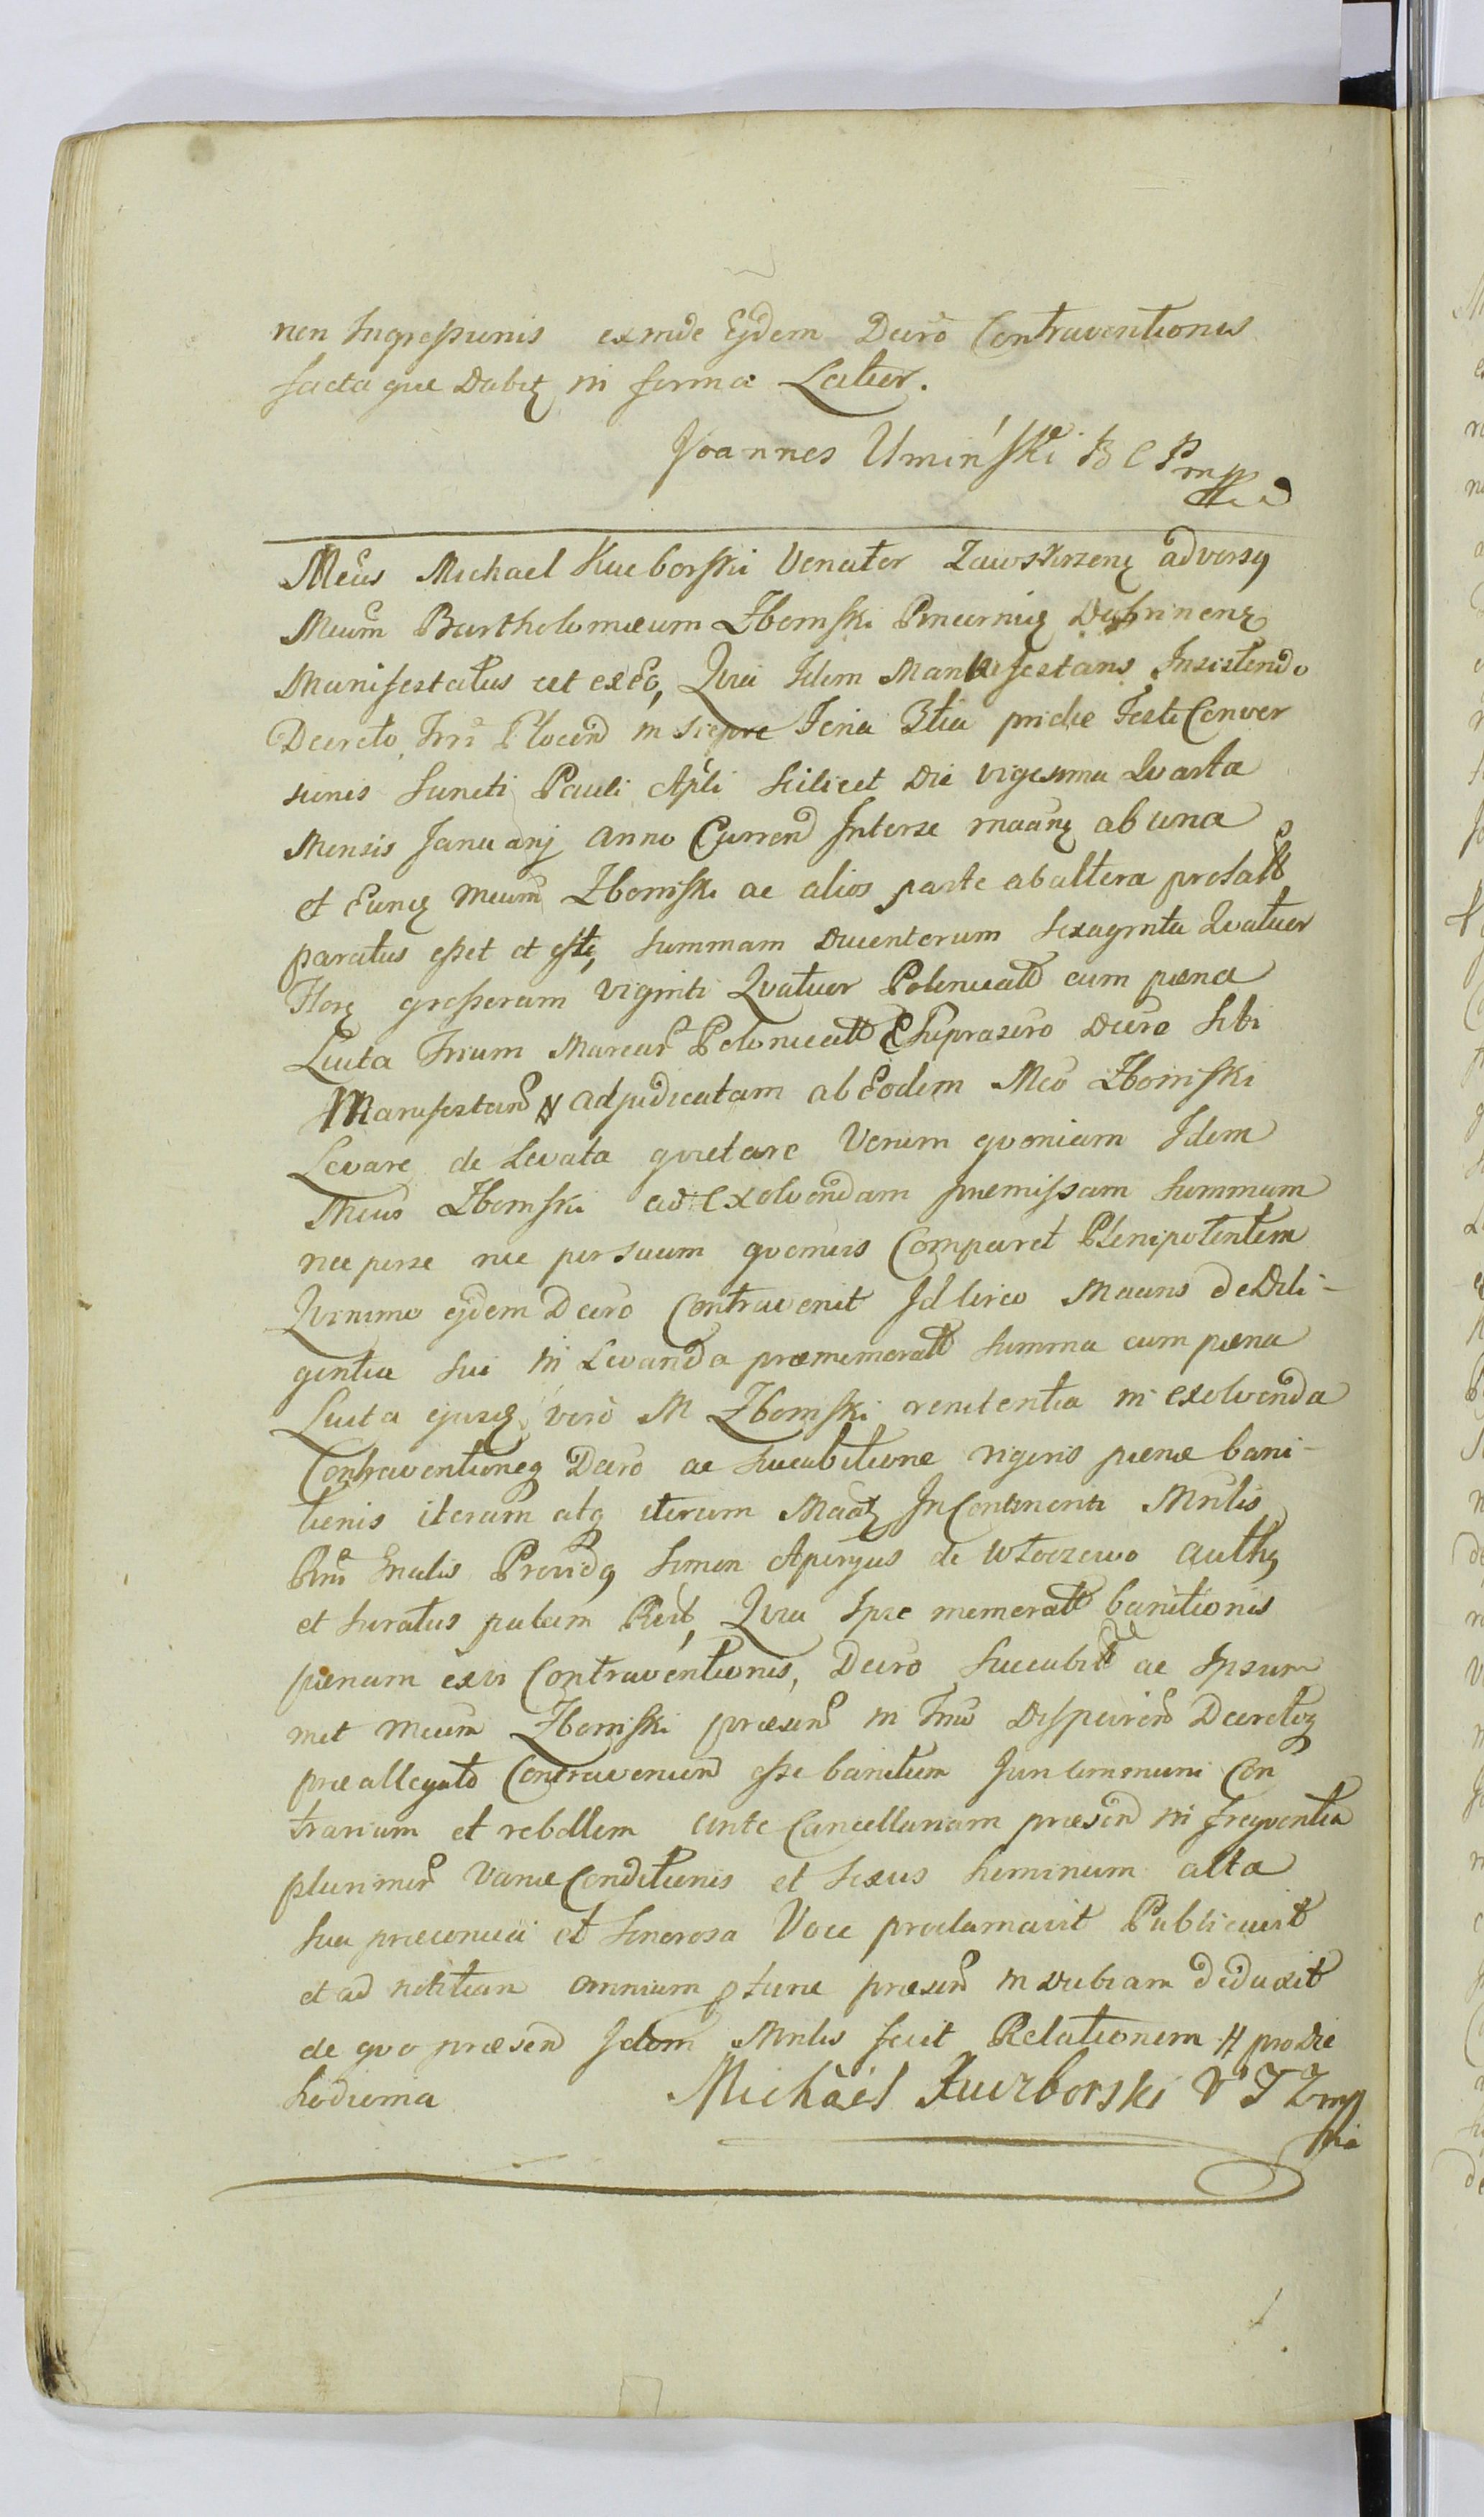 non Ingressionis exinde Ejdem Decrō Contraventionis
factaque Dabitz in forma Latior.
Joannes Umiński B C P mpp
Mcus Michael Kuczborski Venator Zawskrzenz adversq
Mcum Bartholomæum Zbomski Pincerniz Dobrinenz
Manifestatus est ex eo, Qvia Idem Manifestans Insistendo
Decreto Trri Plocen in sui pre Feria 3tia pridie Festi Conver
sionis Sancti Pauli Apli Scilicet Die vigesima Qvarta
Mensis Januarij anno Curren Interse maanz ab una
et Eunz Mcum Zbomski ac alios parte ab altera prolatt
paratus esset et est, Summam Ducentorum Sexaginta Qvatuor
Florz grosserum viginti Qvatuor Polonicaltt cum pæna
Lucta Trium Marcar Polonicaltt Suprascro Decro Sibi
Manifestan adjudicatam ab Eodem Mco Zbomski
Levare de Levata qvietare Verum qvoniam Idem
Mcus Zbomski ad Exolvendam præmissam Summam
nec perse nec per Suum qvemvis Comparet Plenipotentem
Qvinimo ejdem Decro Contravenit Id Circo Maans de Dili-
gentia Sui in Levanda præmemoratt Summa cum pæna
Lucta ejusdz vero M Zbomski renitentia in exolvenda
Contraventioneq Decro ac Succubitione rigoris pænæ bani-
tionis iterum atq iterum Maatz In Continenti Mrilis
Rni Gnalis Providq Simon Aperyus de Włoczewo authq
et Juratus palam Recit, Qvia Ipse memoratt banitionis
pænam ex vi Contraventionis, Decro Succubitt ac Ipsum
met Mcum Zbomski præsen in Tmo Disparen Decretoq
præallegato Contravenien esse banitum Juri communi Con
trarium et rebellem ante Cancellariam præsen in freqventia
plurimor Variæ Conditionis et Sexus hominum alta
Sua præconica et Sonorosa Voce proclamavit Publicavit
et ad notitiam omnium ptunc præsen indubiam deduxit
de qvo præsen Idem Mrilis fecit Relationem H pro Die
hodierna Michäel Kuczborski V T Z mpp